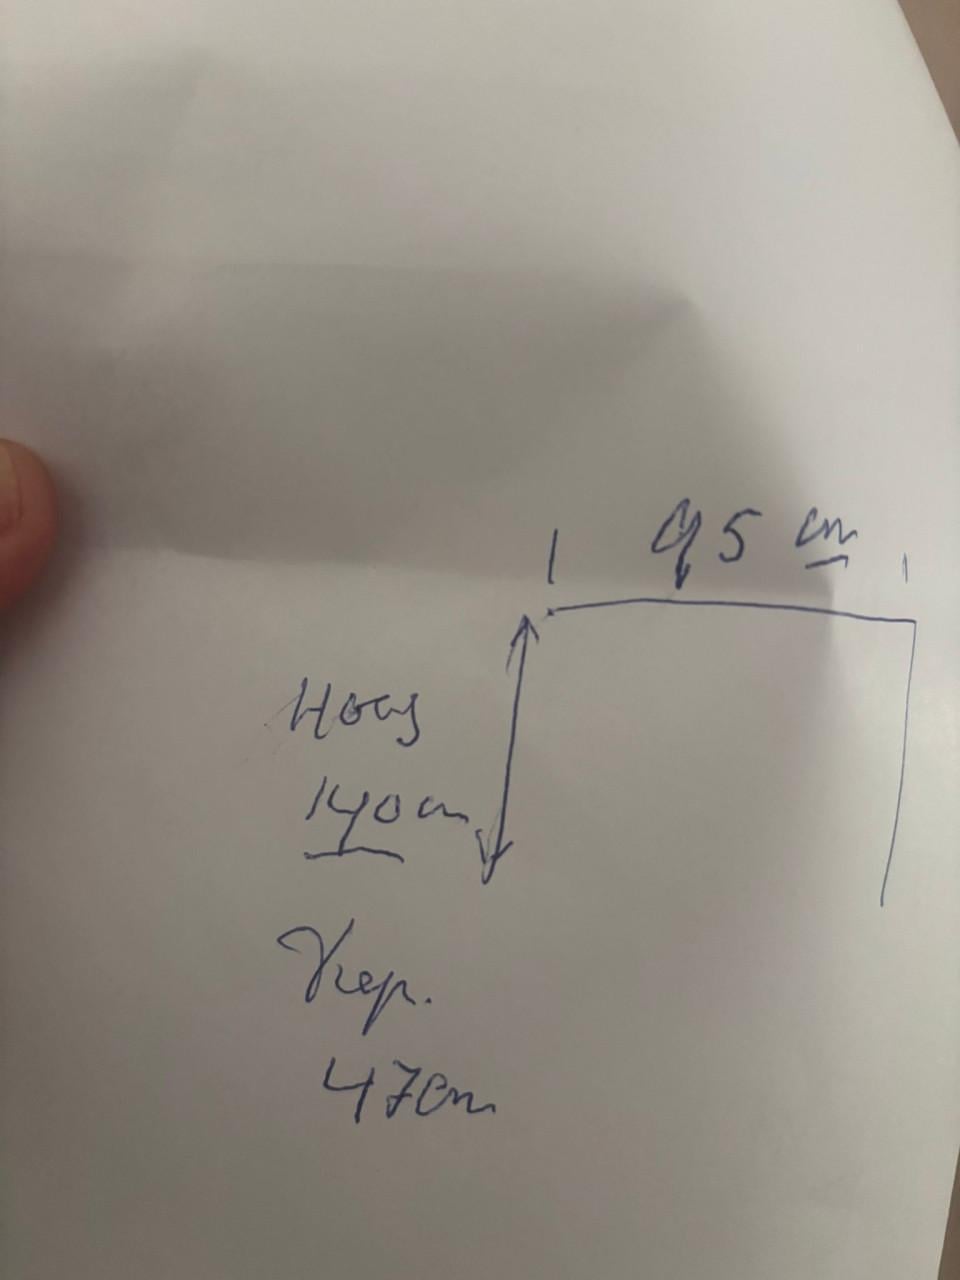 95 cm
Hoog
140 cm
47cm